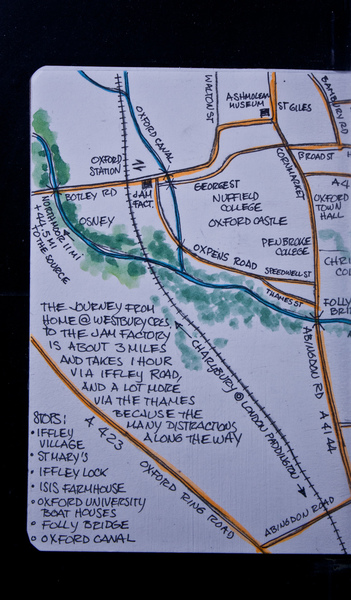 WALTON ST
BANBURY RD
ASHMOLEAN
MUSEUM
ST GILES
OXFORD CANAL
OXFORD
STATION
CORNMARKET
BROAD ST
A 4
BOTLEY RD
JAM
FACT.
GEORGE ST
NUFFIELD
COLLEGE
OXFORD CASTLE
OXFORD
TOWN
HALL
NORTHMOOR 11 MI
+ 44.5 MI
TO THE SOURCE
OSNEY
PEMBROKE
COLLEGE
CHRI
CO
OXPENS ROAD
SPEEDWELL ST
THAMES ST
FOLLY
BRI
THE JOURNEY FROM
HOME @ WESTBURY CRES.
TO THE JAM FACTORY
IS ABOUT 3 MILES
AND TAKES 1 HOUR
VIA IFFLEY ROAD,
AND A LOT MORE
VIA THE THAMES
BECAUSE THE
MANY DISTRACTIONS
ALONG THE WAY
CHARLBURY @ LONDON PADDINGTON
ABINGDON RD
A 4144
STOPS:
• IFFLEY
VILLAGE
• ST MARY'S
• IFFLEY LOCK
• ISIS FARMHOUSE
• OXFORD UNIVERSITY
BOAT HOUSES
• FOLLY BRIDGE
• OXFORD CANAL
A 423
OXFORD RING ROAD
ABINGDON ROAD